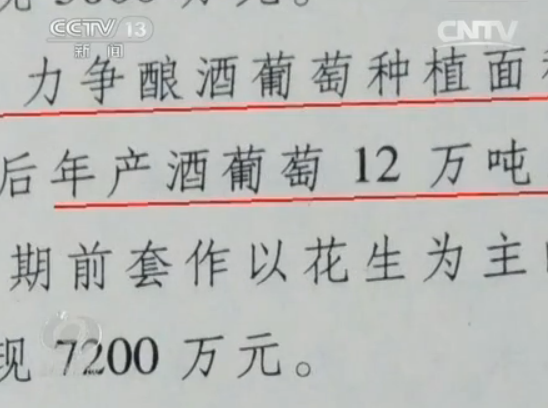 CCTV 13
新闻
CNTV
5000 万元。
力争酿酒葡萄种植面
后年产酒葡萄 12 万吨
期前套作以花生为主
现 7200 万元。